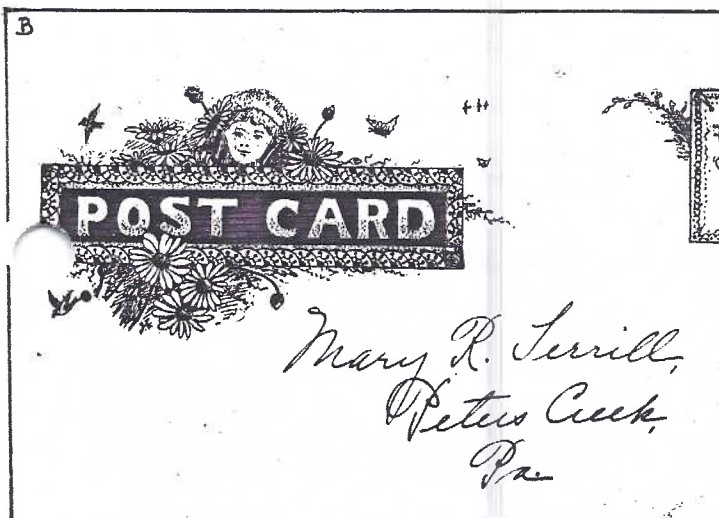 B
POST CARD
Mary R. Terrill,
Peters Creek,
Pa.